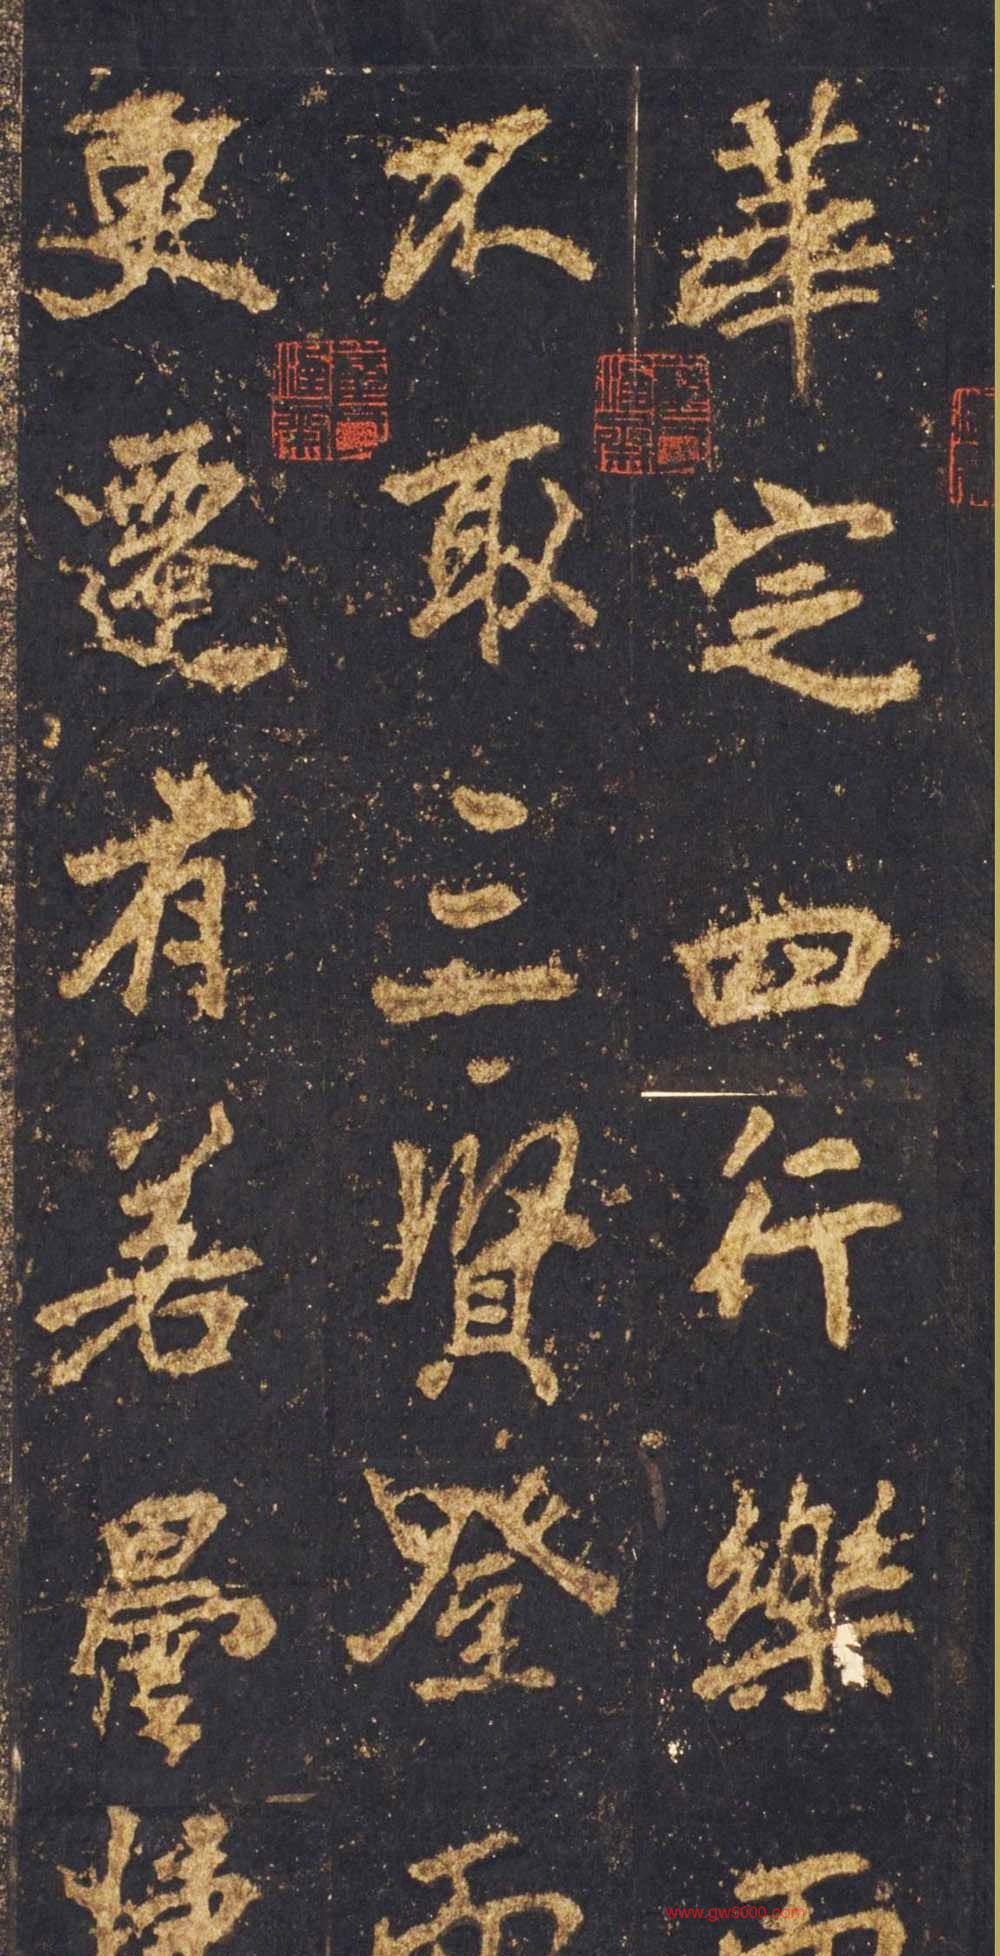 華定四行樂而
不取三賢登而
更遷有若曇捷
www.gw5000.com